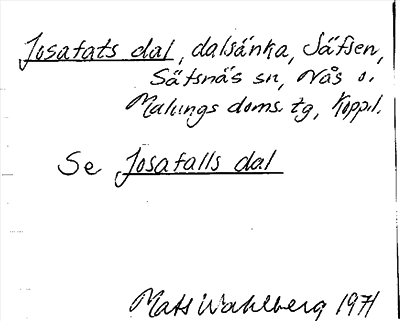 Josafats dal, dalsänka, Säfsen,
Säfsnäs sn, Nås o.
Malungs doms. tg, Koppl.
Se Josafalls dal
Mats Wahlberg 1971